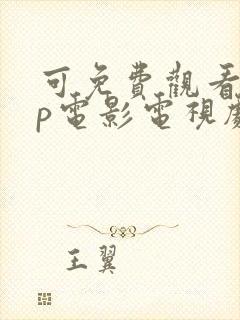 可免費觀看
p電影電視劇
王翼